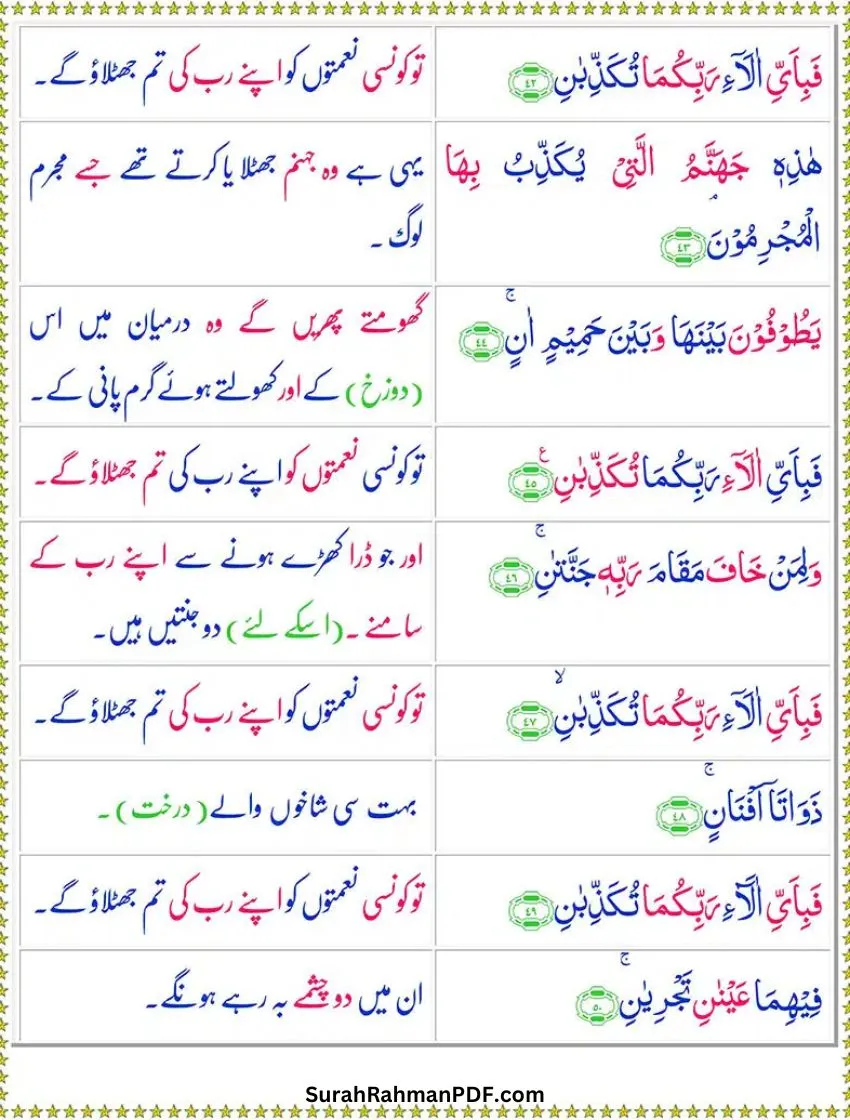 فَبِاَيِّ اٰلَآءِ رَبِّكُمَا تُكَذِّبٰنِ ﴿٤٢﴾
تو کونسی نعمتوں کو اپنے رب کی تم جھٹلاؤ گے۔
هٰذِهٖ جَهَنَّمُ الَّتِيْ يُكَذِّبُ بِهَا
الْمُجْرِمُوْنَ ۘ ﴿٤٣﴾
یہی ہے وہ جہنم جھٹلا یا کرتے تھے جسے مجرم
لوگ ۔
يَطُوْفُوْنَ بَيْنَهَا وَبَيْنَ حَمِيْمٍ اٰنٍ ۚ ﴿٤٤﴾
گھومتے پھریں گے وہ درمیان میں اس
(دوزخ) کے اور کھولتے ہوئے گرم پانی کے۔
فَبِاَيِّ اٰلَآءِ رَبِّكُمَا تُكَذِّبٰنِ ﴿٤٥﴾ ع
تو کونسی نعمتوں کو اپنے رب کی تم جھٹلاؤ گے۔
وَلِمَنْ خَافَ مَقَامَ رَبِّهٖ جَنَّتٰنِ ۚ ﴿٤٦﴾
اور جو ڈرا کھڑے ہونے سے اپنے رب کے
سامنے ۔ (اسکے لئے) دو جنتیں ہیں۔
فَبِاَيِّ اٰلَآءِ رَبِّكُمَا تُكَذِّبٰنِ ۙ ﴿٤٧﴾
تو کونسی نعمتوں کو اپنے رب کی تم جھٹلاؤ گے۔
ذَوَاتَآ اَفْنَانٍ ۚ ﴿٤٨﴾
بہت سی شاخوں والے (درخت)۔
فَبِاَيِّ اٰلَآءِ رَبِّكُمَا تُكَذِّبٰنِ ﴿٤٩﴾
تو کونسی نعمتوں کو اپنے رب کی تم جھٹلاؤ گے۔
فِيْهِمَا عَيْنٰنِ تَجْرِيٰنِ ۚ ﴿٥٠﴾
ان میں دو چشمے بہ رہے ہونگے۔
SurahRahmanPDF.com